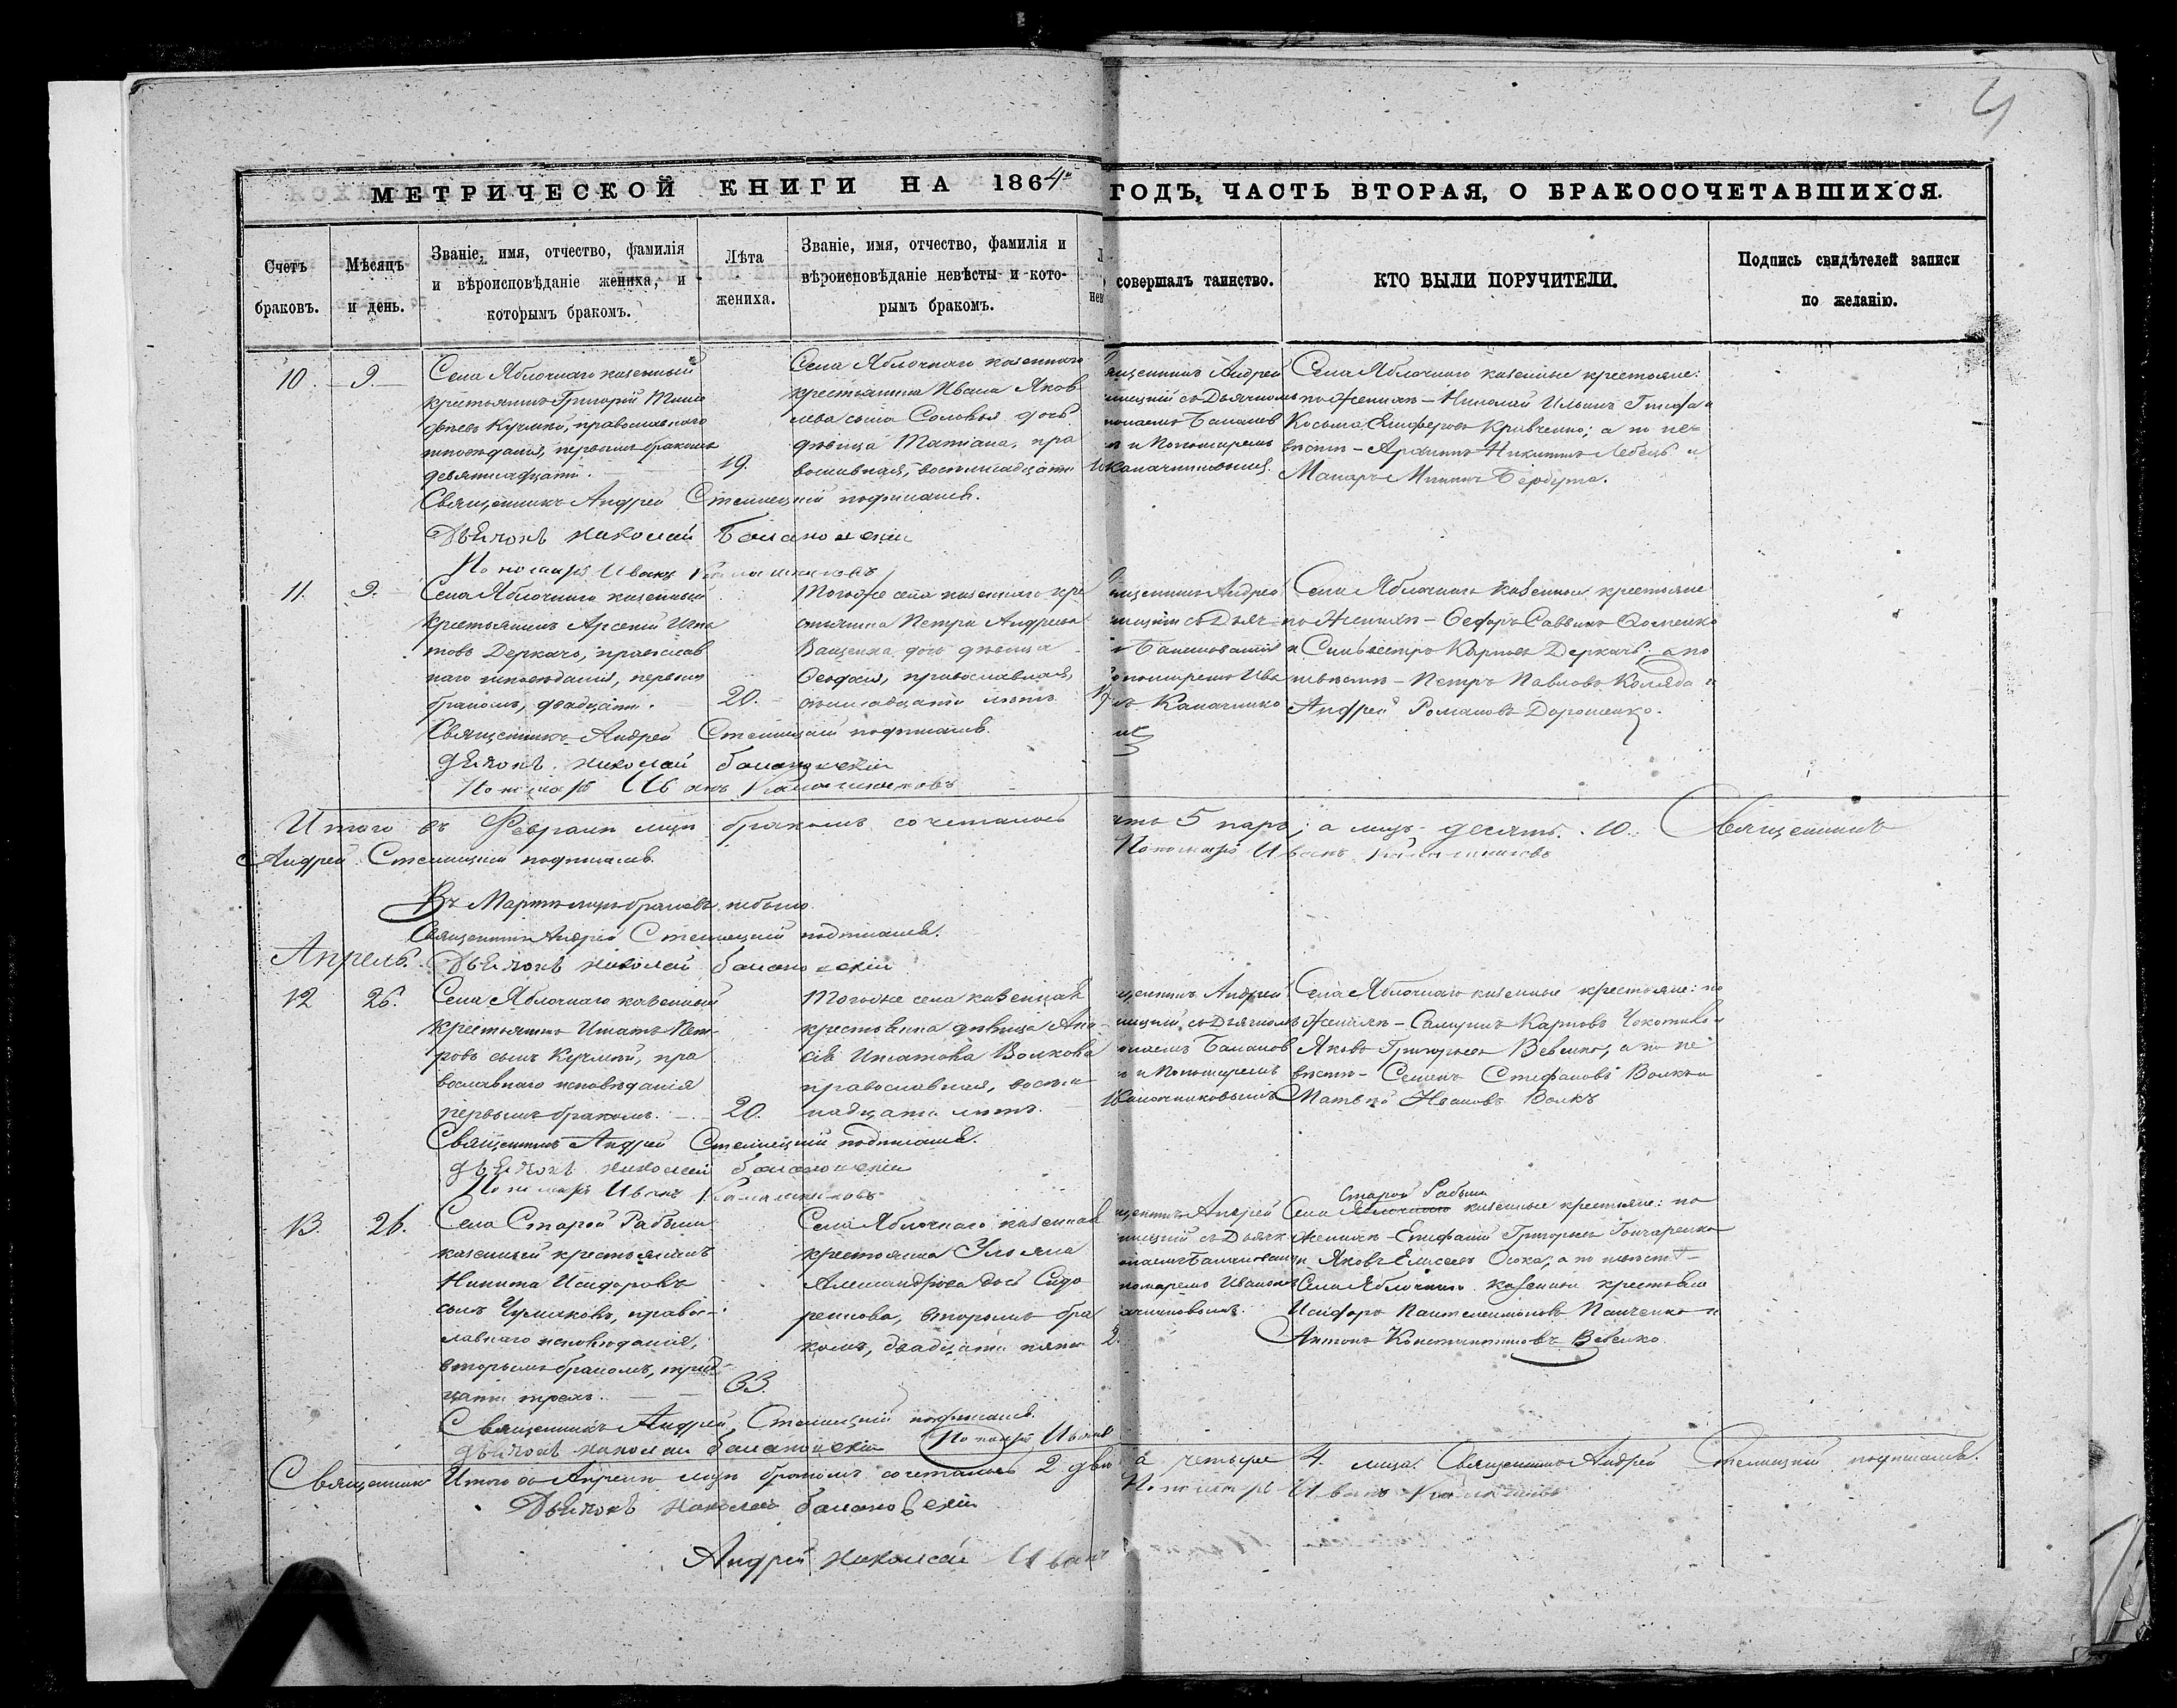 4
МЕТРИЧЕСКОЙ КНИГИ НА 1864й ГОДЪ, ЧАСТЬ ВТОРАЯ, О БРАКОСОЧЕТАВШИХСЯ.
Счетъ
браковъ.
Мѣсяцъ
и день.
Званіе, имя, отчество, фамилія
и вѣроисповѣданіе жениха, и
которымъ бракомъ.
Лѣта
жениха.
Званіе, имя, отчество, фамилія и
вѣроисповѣданіе невѣсты и кото-
рымъ бракомъ.
совершалъ таинство.
КТО БЫЛИ ПОРУЧИТЕЛИ.
Подпись свидѣтелей записи
по желанію.
10.
9.
Села Яблочнаго казенный
крестьянинъ Григорій
Кучмій, православнаго
исповѣданія, первымъ бракомъ
девятнадцати.
19.
Села Яблочнаго казеннаго
крестьянина Ивана Яков
лева сына Соловья дочь
дѣвица Татіана, пра
вославная, восемнадцати
ященникъ Андрей
мецкій съ Дьячкомъ
колаемъ Баланов
и Пономаремъ
Калашниковымъ.
Села Яблочнаго казенные крестьяне:
по женихѣ – Николай Ильинъ и
Косьма Кривченко; а по не-
вѣстѣ – Никитинъ Лебедь и
Макаръ
Священникъ Андрей Стеллецкій подписалъ.
Дьячокъ Николай Балановскій
Пономарь Иванъ Калашниковъ
11.
9.
Села Яблочнаго казенный
крестьянинъ Арсеній Игна
товъ Деркачъ, православ
наго исповѣданія, первымъ
бракомъ, двадцати.
20.
Тогоже села казеннаго кре
стьянина Петра Андреева
Ващенка дочь дѣвица
Ѳеодосія, православная,
семнадцати лѣтъ.
ященникъ Андрей
лецкій съ Дьяч
Балановскій
пономаремъ Ива
Калашнико
Села Яблочнаго казенные крестьяне
по женихѣ – Ѳедоръ Саввинъ Ѳоменко
и Сильвестръ Карповъ Деркачъ, а по
невѣстѣ – Петръ Павловъ Коляда и
Андрей Романовъ Дорошенко.
Священникъ Андрей Стеллецкій подписалъ.
Дьячокъ Николай Балановскій
Пономарь Иванъ Калашниковъ
Итого въ Февралѣ мцѣ бракомъ сочеталось 5 паръ; а лицъ десять. 10. Священникъ
Андрей Стеллецкій подписалъ.
Пономарь Иванъ Калашниковъ
Въ Мартѣ мцѣ браковъ небыло
Священникъ Андрей Стеллецкій подписалъ.
Апрель.
Дьячокъ Николай Балановскій
12
26.
Села Яблочнаго казенный
крестьянинъ Игнатъ Пет-
ровъ сынъ Кучмій, пра
вославнаго исповѣданія
первымъ бракомъ.
20.
Тогоже села казенная
крестьянка дѣвица Ана-
сія Игнатова Волкова
православная, восем
надцати лѣтъ.
щенникъ Андрей
лецкій съ Дьячкомъ
колаемъ Баланов
и Пономаремъ
Калашниковымъ
Села Яблочнаго казенные крестьяне: по
женихѣ – Карповъ и
Яковъ Григорьевъ Вевенко, а по не
вѣстѣ – Семенъ Стефановъ Волкъ и
Матвѣй Ивановъ Волкъ
Священникъ Андрей Стеллецкій подписалъ.
Дьячокъ Николай Балановскій
Пономарь Иванъ Калашниковъ
13.
26.
Села Старой Рабыни
казенный крестьянинъ
Никита Исидоровъ
сынъ Чумаковъ, правос-
лавнаго исповѣданія,
вторымъ бракомъ, трид-
цати трехъ.
33.
Села Яблочнаго казенная
крестьянка Ульяна
Александрова дочь Сидо
ренкова, вторымъ бра
комъ, двадцати пяти
щенникъ Андрей
лецкій съ Дьячк
колаемъ Балановскимъ
пономаремъ Иваномъ
лашниковымъ.
Старой Рабыни
Села казенные крестьяне: по
женихѣ – Епифаній Григорьевъ Гончаренко
и Яковъ Елисеевъ Осока, а по невѣстѣ –
Села Яблочнаго казенные крестьяне
Исидоръ Пантелеимоновъ Панченко и
Антонъ Константиновъ Вевенко.
Священникъ Андрей Стеллецкій подписалъ.
Дьячокъ Николай Балановскій Пономарь Иванъ
Священникъ Итого въ Апрелѣ мцѣ бракомъ сочеталось 2 двѣ а четыре 4. лица. Священникъ Андрей Стеллецкій подписалъ.
Дьячокъ Николай Балановскій
Пономарь Иванъ Калашниковъ
Андрей Николай Иванъ